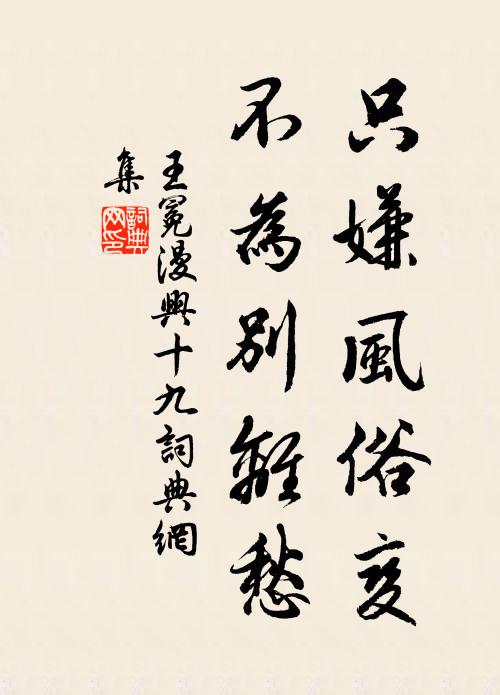 只嫌風俗変
不為別離愁
王冕漫興十九詞典網
集
詞典
网印